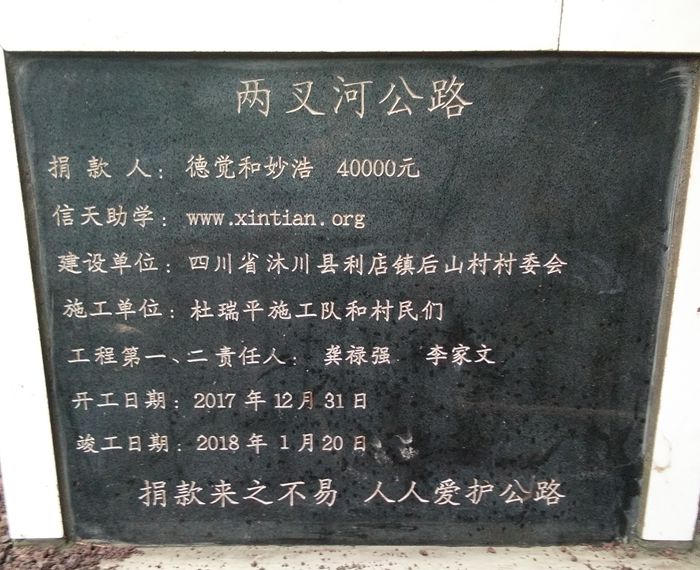 两叉河公路
捐款人：德觉和妙浩 40000元
信天助学：www.xintian.org
建设单位：四川省沐川县利店镇后山村村委会
施工单位：杜瑞平施工队和村民们
工程第一、二责任人：龚禄强 李家文
开工日期：2017年12月31日
竣工日期：2018年1月20日
捐款来之不易 人人爱护公路